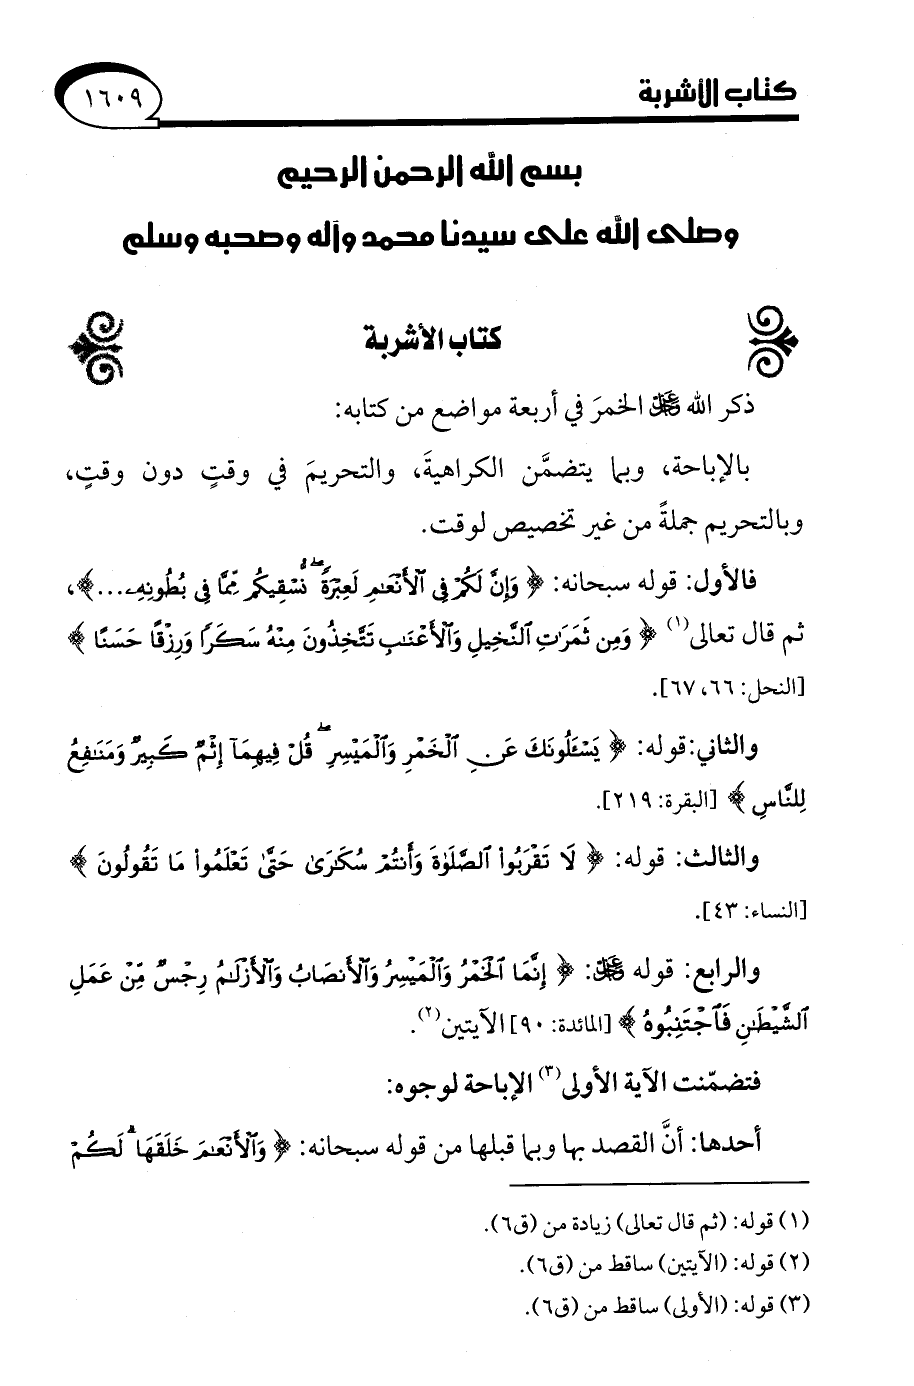 كتاب الأشربة
١٦٠٩
بسم الله الرحمن الرحيم
وصلى الله على سيدنا محمد وآله وصحبه وسلم
كتاب الأشربة
ذكر الله ﷿ الخمرَ في أربعة مواضع من كتابه:
بالإباحة، وبما يتضمَّن الكراهيةَ، والتحريمَ في وقتٍ دون وقتٍ،
وبالتحريم جملةً من غير تخصيص لوقت.
فالأول: قوله سبحانه: ﴿ وَإِنَّ لَكُمْ فِي ٱلْأَنْعَٰمِ لَعِبْرَةً ۖ نُّسْقِيكُم مِّمَّا فِي بُطُونِهِۦ...﴾،
ثم قال تعالى(١) ﴿ وَمِن ثَمَرَٰتِ ٱلنَّخِيلِ وَٱلْأَعْنَٰبِ تَتَّخِذُونَ مِنْهُ سَكَرًا وَرِزْقًا حَسَنًا ﴾
[النحل: ٦٦، ٦٧].
والثاني:قوله: ﴿ يَسْـَٔلُونَكَ عَنِ ٱلْخَمْرِ وَٱلْمَيْسِرِ ۖ قُلْ فِيهِمَآ إِثْمٌ كَبِيرٌ وَمَنَٰفِعُ
لِلنَّاسِ ﴾ [البقرة: ٢١٩].
والثالث: قوله: ﴿ لَا تَقْرَبُوا۟ ٱلصَّلَوٰةَ وَأَنتُمْ سُكَٰرَىٰ حَتَّىٰ تَعْلَمُوا۟ مَا تَقُولُونَ ﴾
[النساء: ٤٣].
والرابع: قوله ﷿: ﴿ إِنَّمَا ٱلْخَمْرُ وَٱلْمَيْسِرُ وَٱلْأَنصَابُ وَٱلْأَزْلَٰمُ رِجْسٌ مِّنْ عَمَلِ
ٱلشَّيْطَٰنِ فَٱجْتَنِبُوهُ ﴾ [المائدة: ٩٠] الآيتين(٢).
فتضمّنت الآية الأولى(٣) الإباحة لوجوه:
أحدها: أنَّ القصد بها وبما قبلها من قوله سبحانه: ﴿ وَٱلْأَنْعَٰمَ خَلَقَهَا ۗ لَكُمْ
(١) قوله: (ثم قال تعالى) زيادة من (ق٦).
(٢) قوله: (الآيتين) ساقط من (ق٦).
(٣) قوله: (الأولى) ساقط من (ق٦).